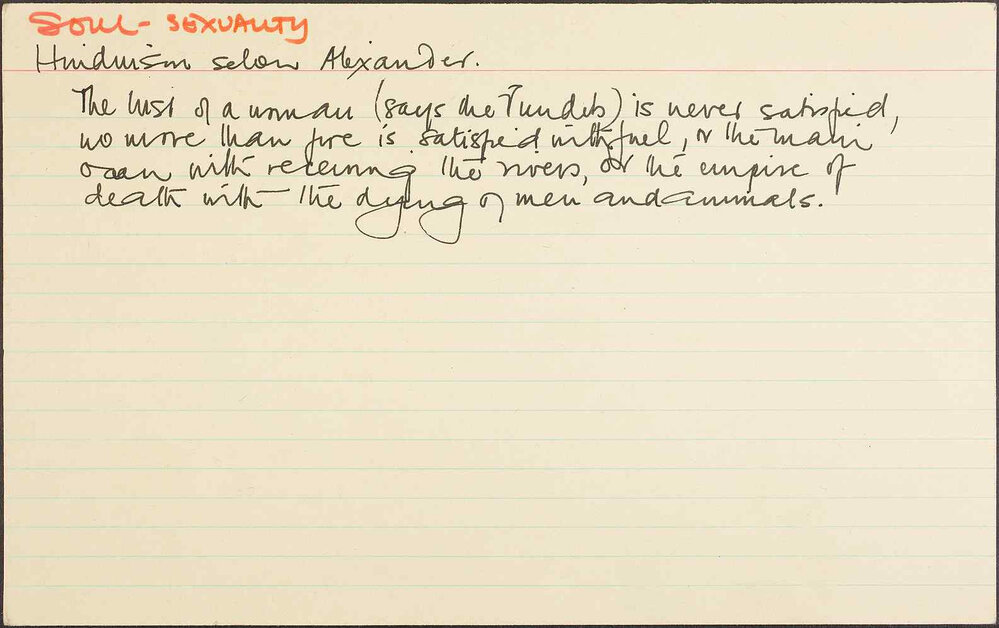 SOUL - SEXUALITY
Hinduism selon Alexander.
The lust of a woman (says the Pundits) is never satisfied,
no more than fire is satisfied with fuel, or the main
ocean with receiving the rivers, or the empire of
death with the dying of men and animals.